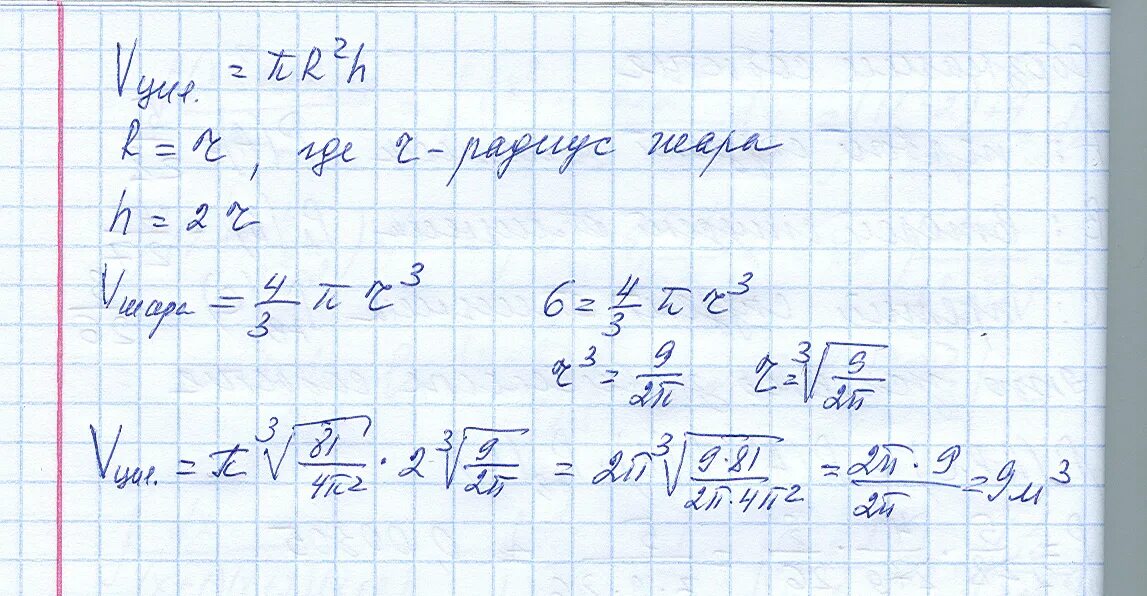 Vцил. = πR²h
R = r, где r - радиус шара
h = 2r
Vшара = 4/3 πr³ 6 = 4/3 πr³
r³ = 9/2π r = ∛(9/2π)
Vцил. = π ∛(81/4π²) · 2 ∛(9/2π) = 2π ∛(9·81/2π·4π²) = 2π·9/2π = 9м³